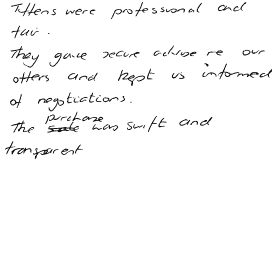 Tiffens were professional and
fair.
They gave secure advise re our
offers and kept us informed
of negotiations.
The purchase was swift and
transparent